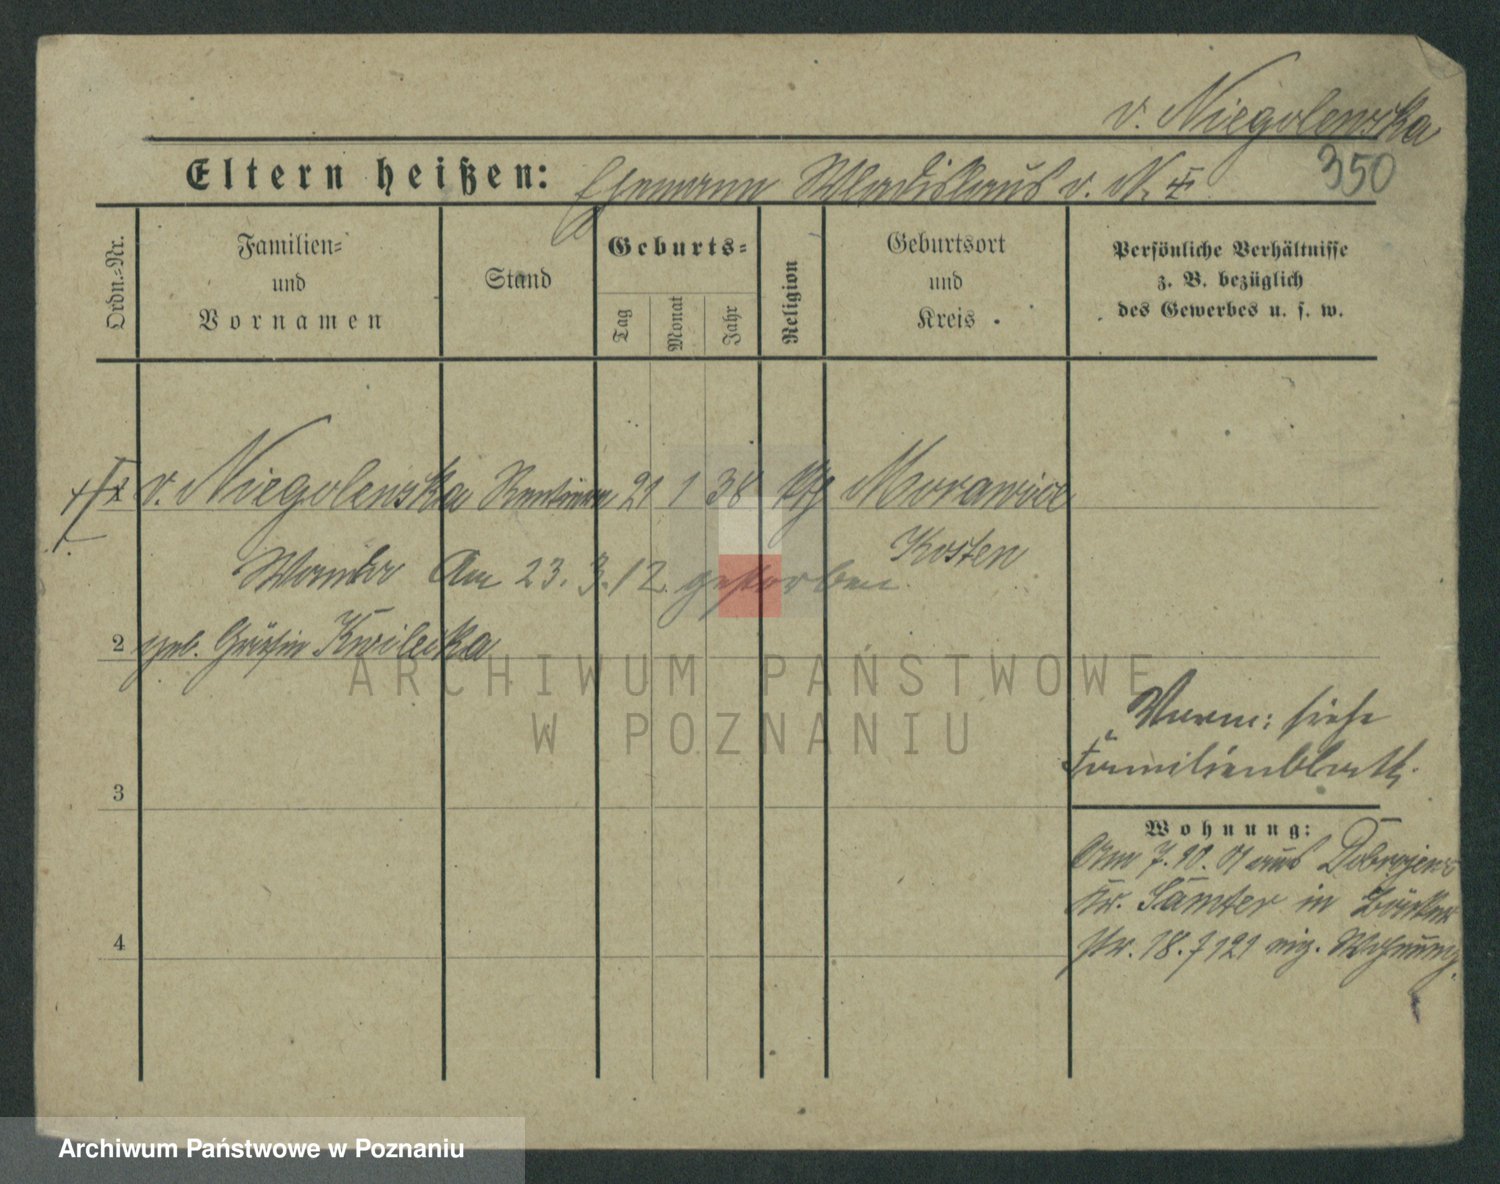 v. Niegolenska
350
Eltern heißen: Ehemann Wladislaus v. N. ✝
Ordn.=Nr.
Familien=
und
Vornamen
Stand
Geburts=
Tag
Monat
Jahr
Religion
Geburtsort
und
Kreis
Persönliche Verhältnisse
z. B. bezüglich
des Gewerbes u. s. w.
v. Niegolenska Rentiere 21 1 38 kth Morawice
Kosten
Wanda Am 23. 3. 12. gestorben.
2 geb. Gräfin Kwilecka
ARCHIWUM PAŃSTWOWE
W POZNANIU
Verm: siehe
Familienblatt.
3
Wohnung:
Am 7. 10. 01 aus Dobrojewo
Kr. Samter in
Str. 18. eig. Wohnung.
4
Archiwum Państwowe w Poznaniu